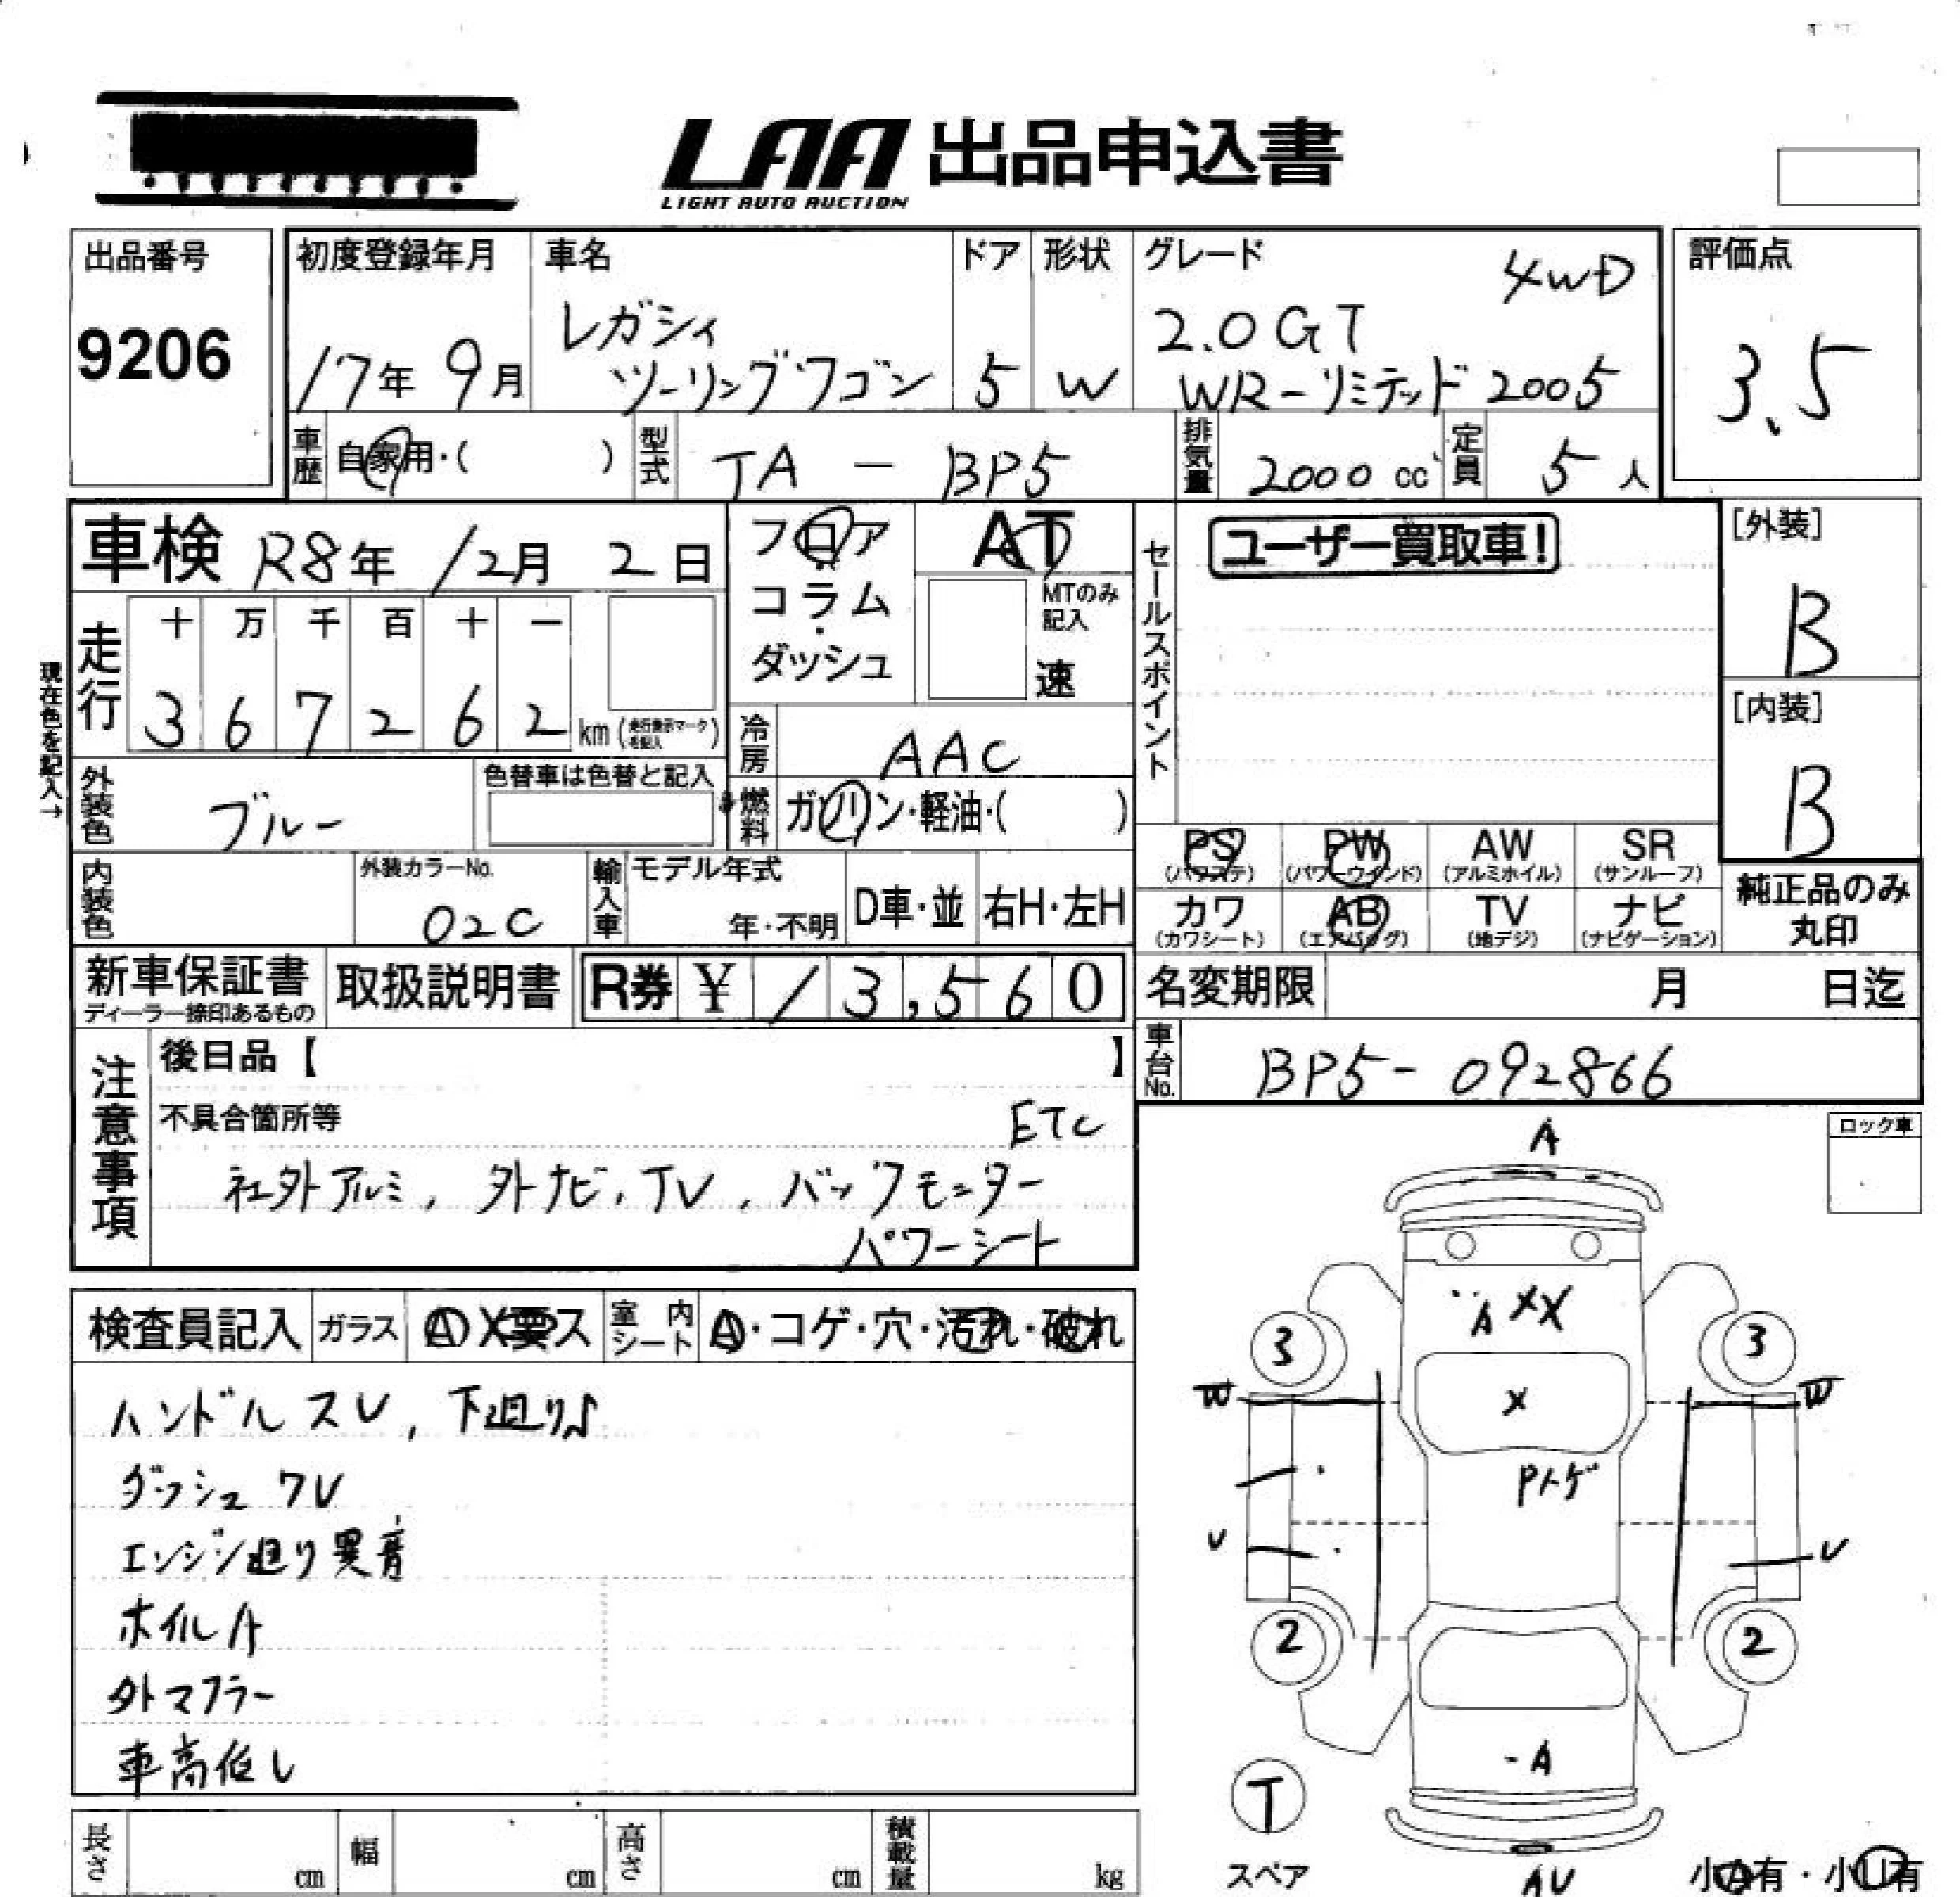 LAA 出品申込書
LIGHT AUTO AUCTION
出品番号
9206
初度登録年月
17年 9月
車名
レガシィ
ツーリングワゴン
ドア
5
形状
W
グレード
4WD
2.0GT
WR-リミテッド2005
評価点
3.5
車歴
自家用・( )
型式
TA - BP5
排気量
2000 cc
定員
5人
車検 R8年 12月 2日
走行
十 万 千 百 十 一
3 6 7 2 6 2 km
現在色を記入→
フロア
コラム
・
ダッシュ
AT
MTのみ
記入
速
冷房
AAC
燃料
ガソリン・軽油・( )
外装色
ブルー
色替車は色替と記入
内装色
外装カラーNo.
02C
輸入車
モデル年式
年・不明
D車・並
右H・左H
セールスポイント
ユーザー買取車!
[外装]
B
[内装]
B
PS AW SR
PW
(パワステ) (パワーウインド) (アルミホイル) (サンルーフ)
カワ AB TV ナビ
(カワシート) (エアバッグ) (地デジ) (ナビゲーション)
純正品のみ
丸印
新車保証書
ディーラー捺印あるもの
取扱説明書
R券 ¥ 13,560
名変期限 月 日迄
車台No.
BP5-092866
注意事項
後日品【 】
不具合箇所等
ETC
社外アルミ, 外ナビ, TV, バックモニター
パワーシート
ロック車
検査員記入
ガラス
A X 要ス
室内
シート
A・コゲ・穴・汚れ・破れ
ハンドルスレ, 下廻り
ダッシュ ワレ
エンジン廻り異音
ホイルA
外マフラー
車高低し
A
A XX
3 3
W W
X
Pトゲ
U U
2 2
-A
T
スペア
AU
小A有・小U有
長さ cm
幅 cm
高さ cm
積載量 kg